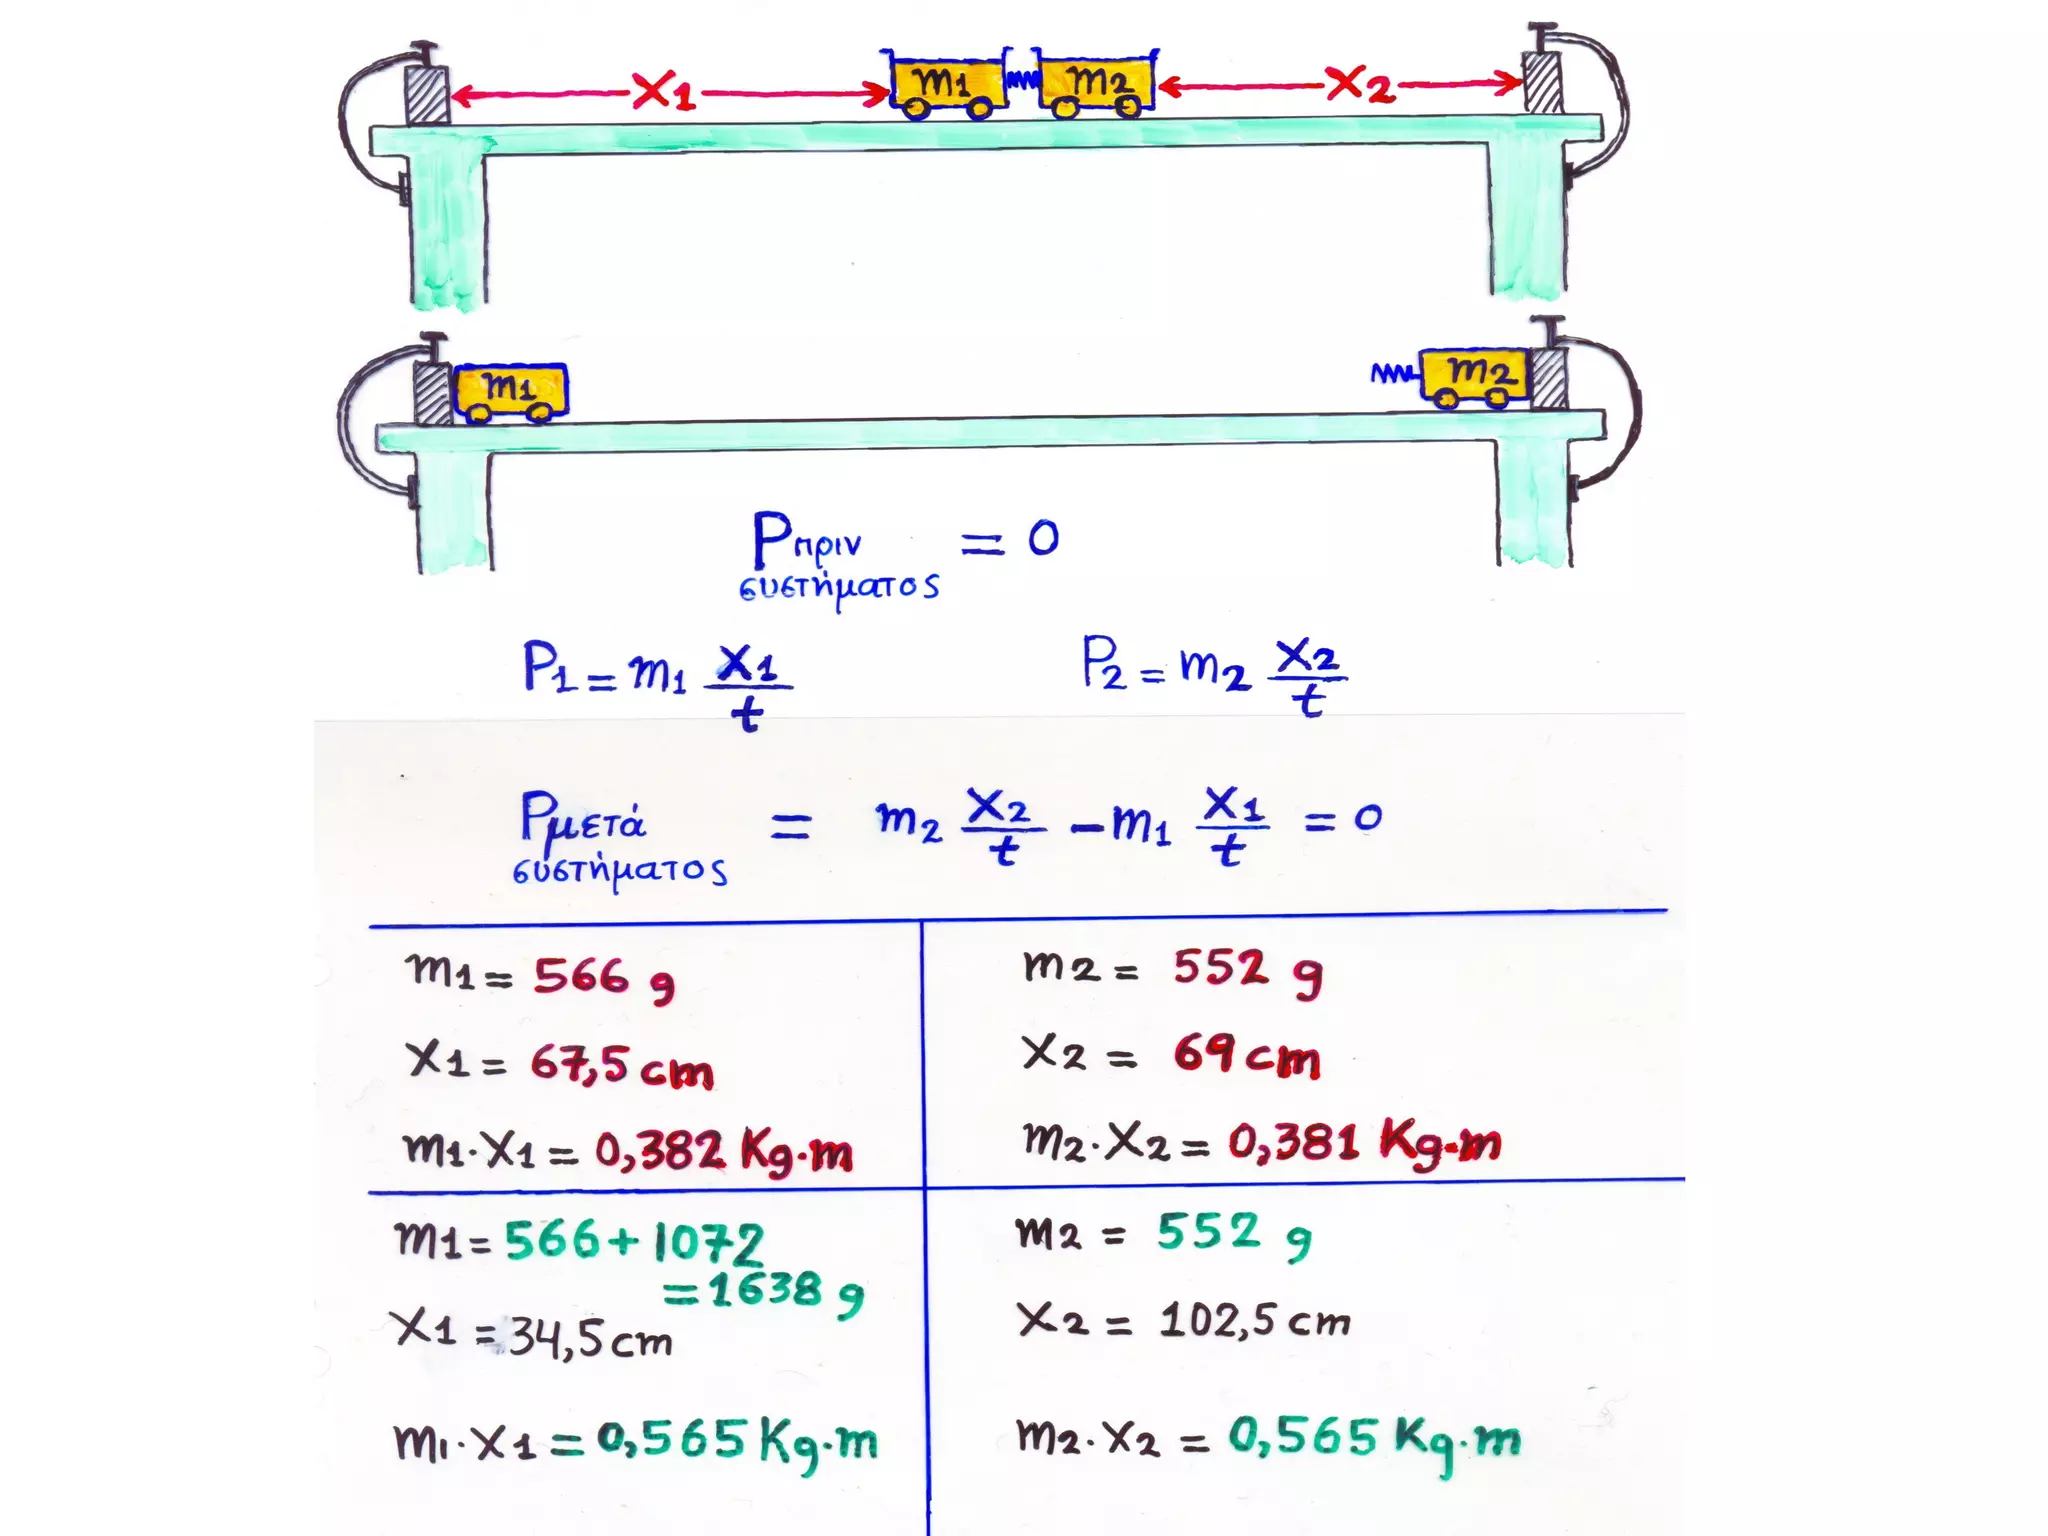 X1 m1 m2 X2
m1 m2
Pπριν = 0
συστήματος
P1 = m1 X1/t P2 = m2 X2/t
Pμετά = m2 X2/t - m1 X1/t = 0
συστήματος
m1 = 566 g
X1 = 67,5 cm
m1·X1 = 0,382 Kg·m
m2 = 552 g
X2 = 69 cm
m2·X2 = 0,381 Kg·m
m1 = 566 + 1072
= 1638 g
X1 = 34,5 cm
m1·X1 = 0,565 Kg·m
m2 = 552 g
X2 = 102,5 cm
m2·X2 = 0,565 Kg·m